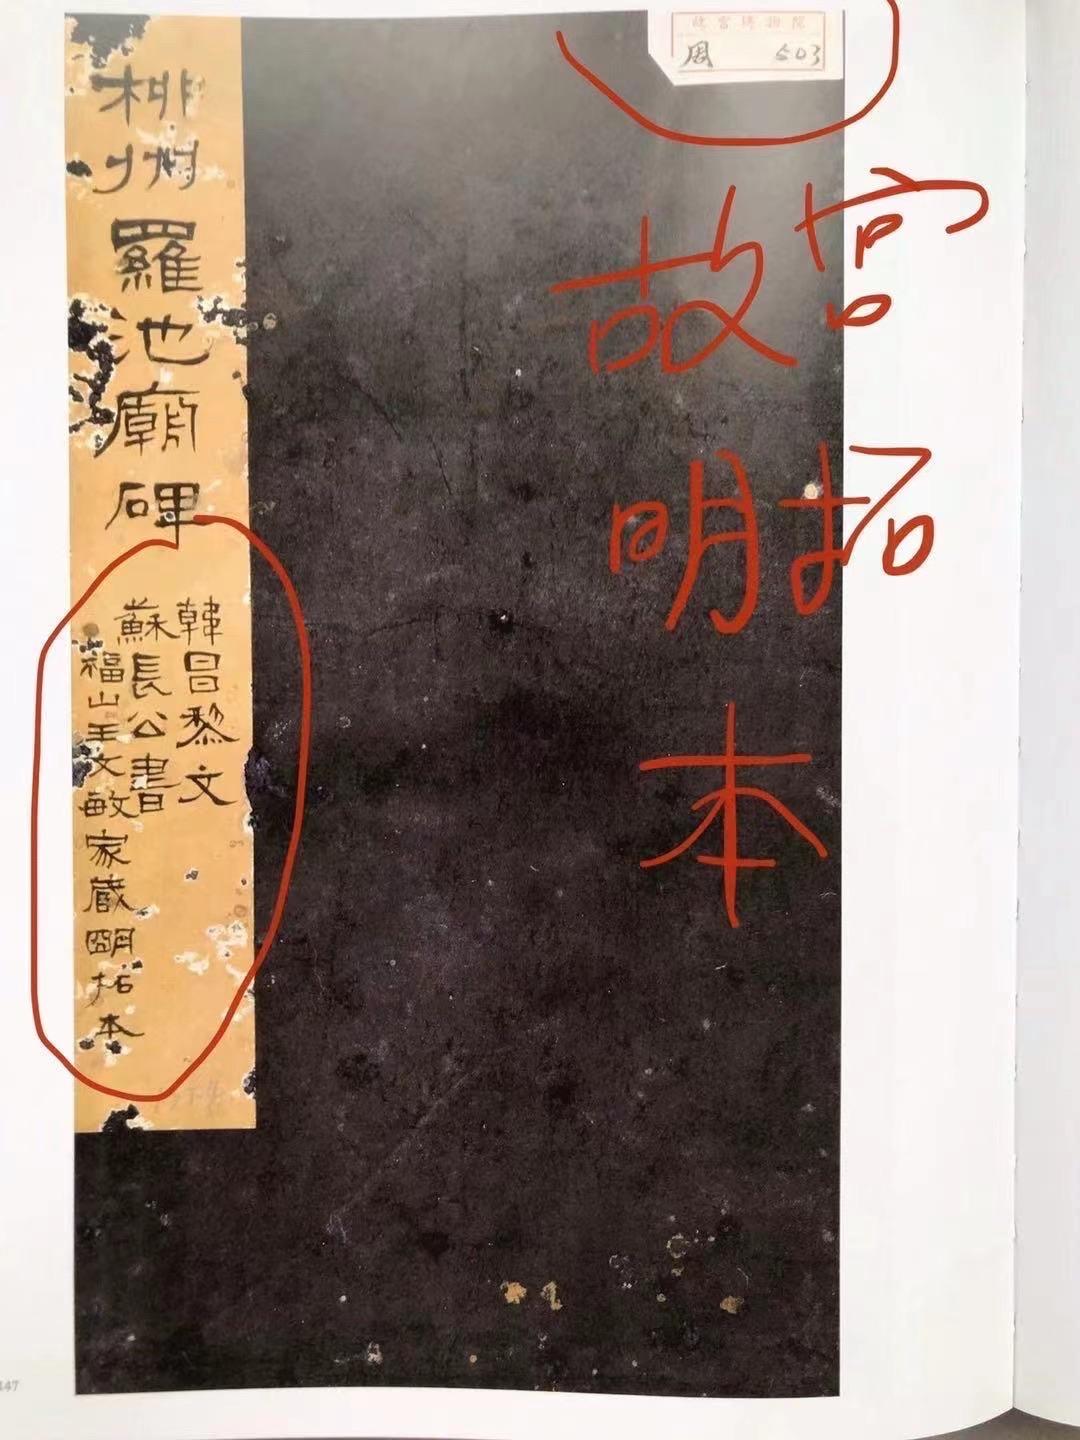 故宮博物院
周 503
柳州羅池廟碑
韓昌黎文
蘇長公書
福山王文敏家藏朙拓本
故宫
明拓
本